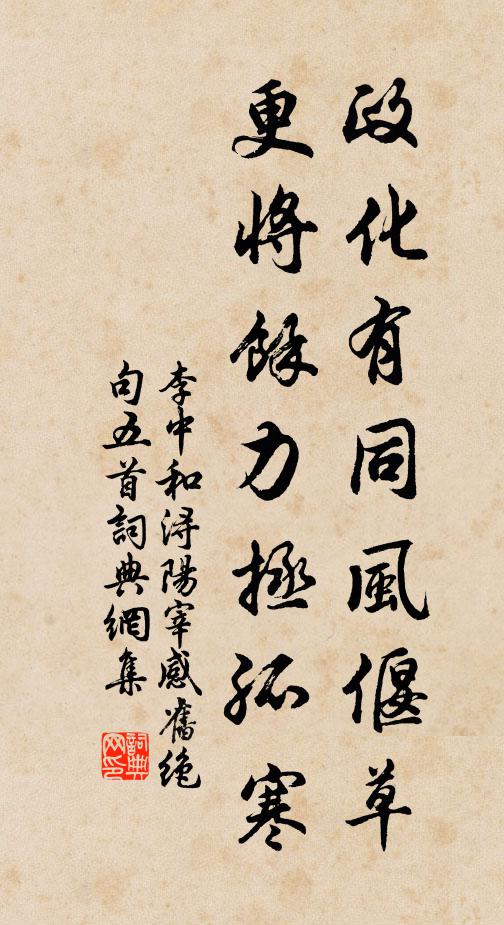 政化有同風偃草
更將餘力拯孤寒
李中和潯陽宰感舊絶
句五首詞典網集
詞典
网印